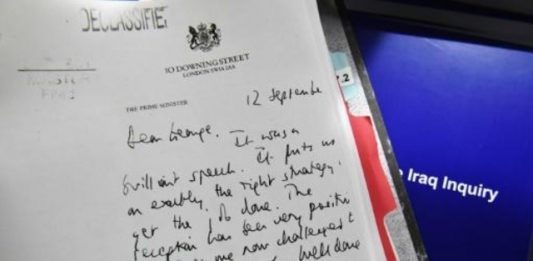 DECLASSIFIED
10 DOWNING STREET
LONDON SW1A 2AA
THE PRIME MINISTER
12 September
Dear George,
It was a
brilliant speech. It puts us
on exactly the right strategy
get the job done. The
reception has been very positive
me now challenged t
well done
.2
Iraq Inquiry